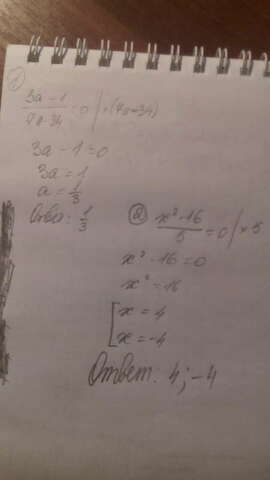 1
3a-1/7a-34=0 | ×(7a-34)
3a-1=0
3a=1
a=1/3
Ответ: 1/3
2
x²-16/5=0 | ×5
x²-16=0
x²=16
[x=4
x=-4
Ответ: 4; -4